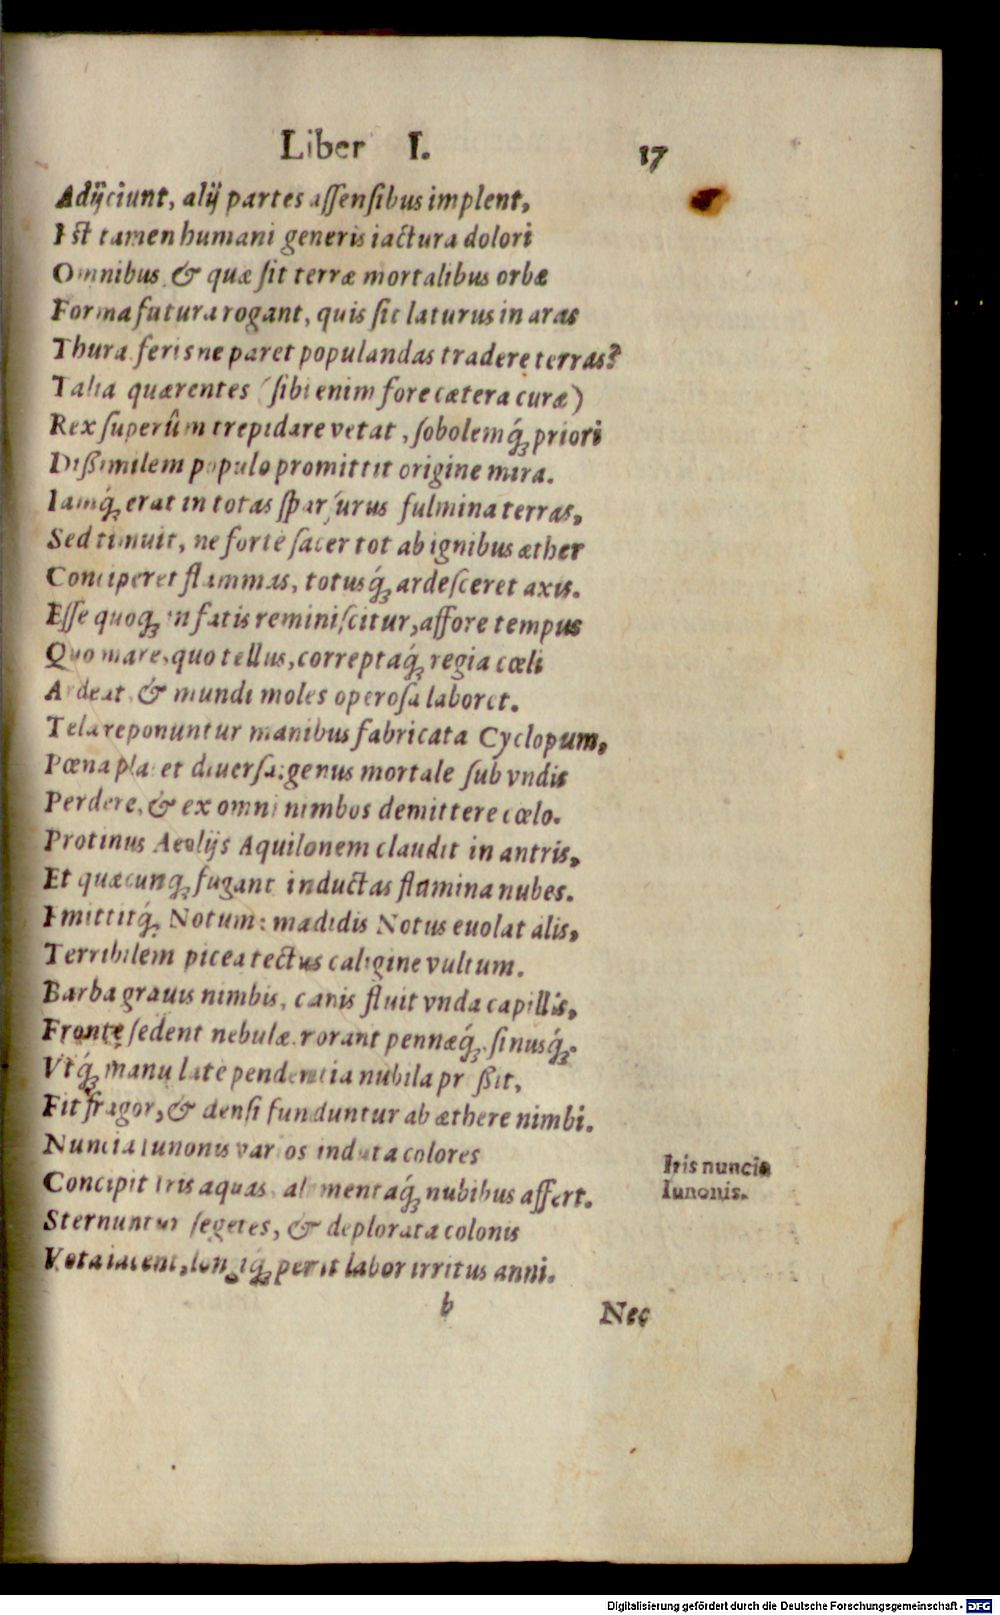 Liber I. 17
Adijciunt, alij partes assensibus implent,
Est tamen humani generis iactura dolori
Omnibus, & quæ sit terræ mortalibus orbæ
Forma futura rogant, quis sit laturus in aras
Thura ferisne paret populandas tradere terras?
Talia quærentes (sibi enim fore cætera curæ)
Rex superûm trepidare vetat, sobolemq́; priori
Dißimilem populo promittit origine mira.
Iamq́; erat in totas sparsurus fulmina terras,
Sed timuit, ne forte sacer tot ab ignibus æther
Conciperet flammas, totusq́; ardesceret axis.
Esse quoq; in fatis reminiscitur, affore tempus
Quo mare, quo tellus, correptaq́; regia cœli
Ardeat, & mundi moles operosa laboret.
Tela reponuntur manibus fabricata Cyclopum,
Pœna placet diuersa: genus mortale sub vndis
Perdere, & ex omni nimbos demittere cœlo.
Protinus Aeolijs Aquilonem claudit in antris,
Et quæcunq; fugant inductas flamina nubes.
Imittitq́; Notum: madidis Notus euolat alis,
Terribilem picea tectus caligine vultum.
Barba grauis nimbis, canis fluit vnda capillis,
Fronte sedent nebulæ. rorant pennæq́; sinusq́;.
Vtq́; manu late pendentia nubila preßit,
Fit fragor, & densi funduntur ab æthere nimbi.
Nuncia Iunonis varios induta colores
Concipit Iris aquas, alimentaq́; nubibus affert.
Iris nuncia
Iunonis.
Sternuntur segetes, & deplorata colonis
Vota iacent, longiq́; perit labor irritus anni.
b Nec
Digitalisierung gefördert durch die Deutsche Forschungsgemeinschaft - DFG